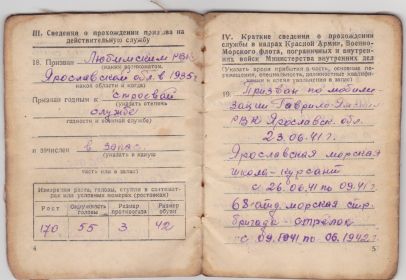 III. Сведения о прохождении призыва на
действительную службу
18. Призван Любимским РВК
(каким военкоматом,
Ярославской обл. в 1935 г.
какой области и когда)
Признан годным к строевой
(указать степень
службе
годности к военной службе)
и зачислен в запас.
(указать в какую
часть или в запас)
Измерения роста, головы, ступни в сантиметрах или условных номерах (ростовках)
Рост Окружность головы Размер противогаза Размер обуви
170 55 3 42
4
IV. Краткие сведения о прохождении
службы в кадрах Красной Армии, Военно-
Морского флота, пограничных и внутрен-
них войск Министерства внутренних дел
19. Призван по мобили-
зации Гаврило-Ямским
РВК Ярославск. обл.
23.06.41 г.
Ярославская морская
школа - курсант
с 26.06.41 по 09.41 г.
68 отд. морская стр.
бригада - стрелок
с 09.1941 по 06.1942 г.
5